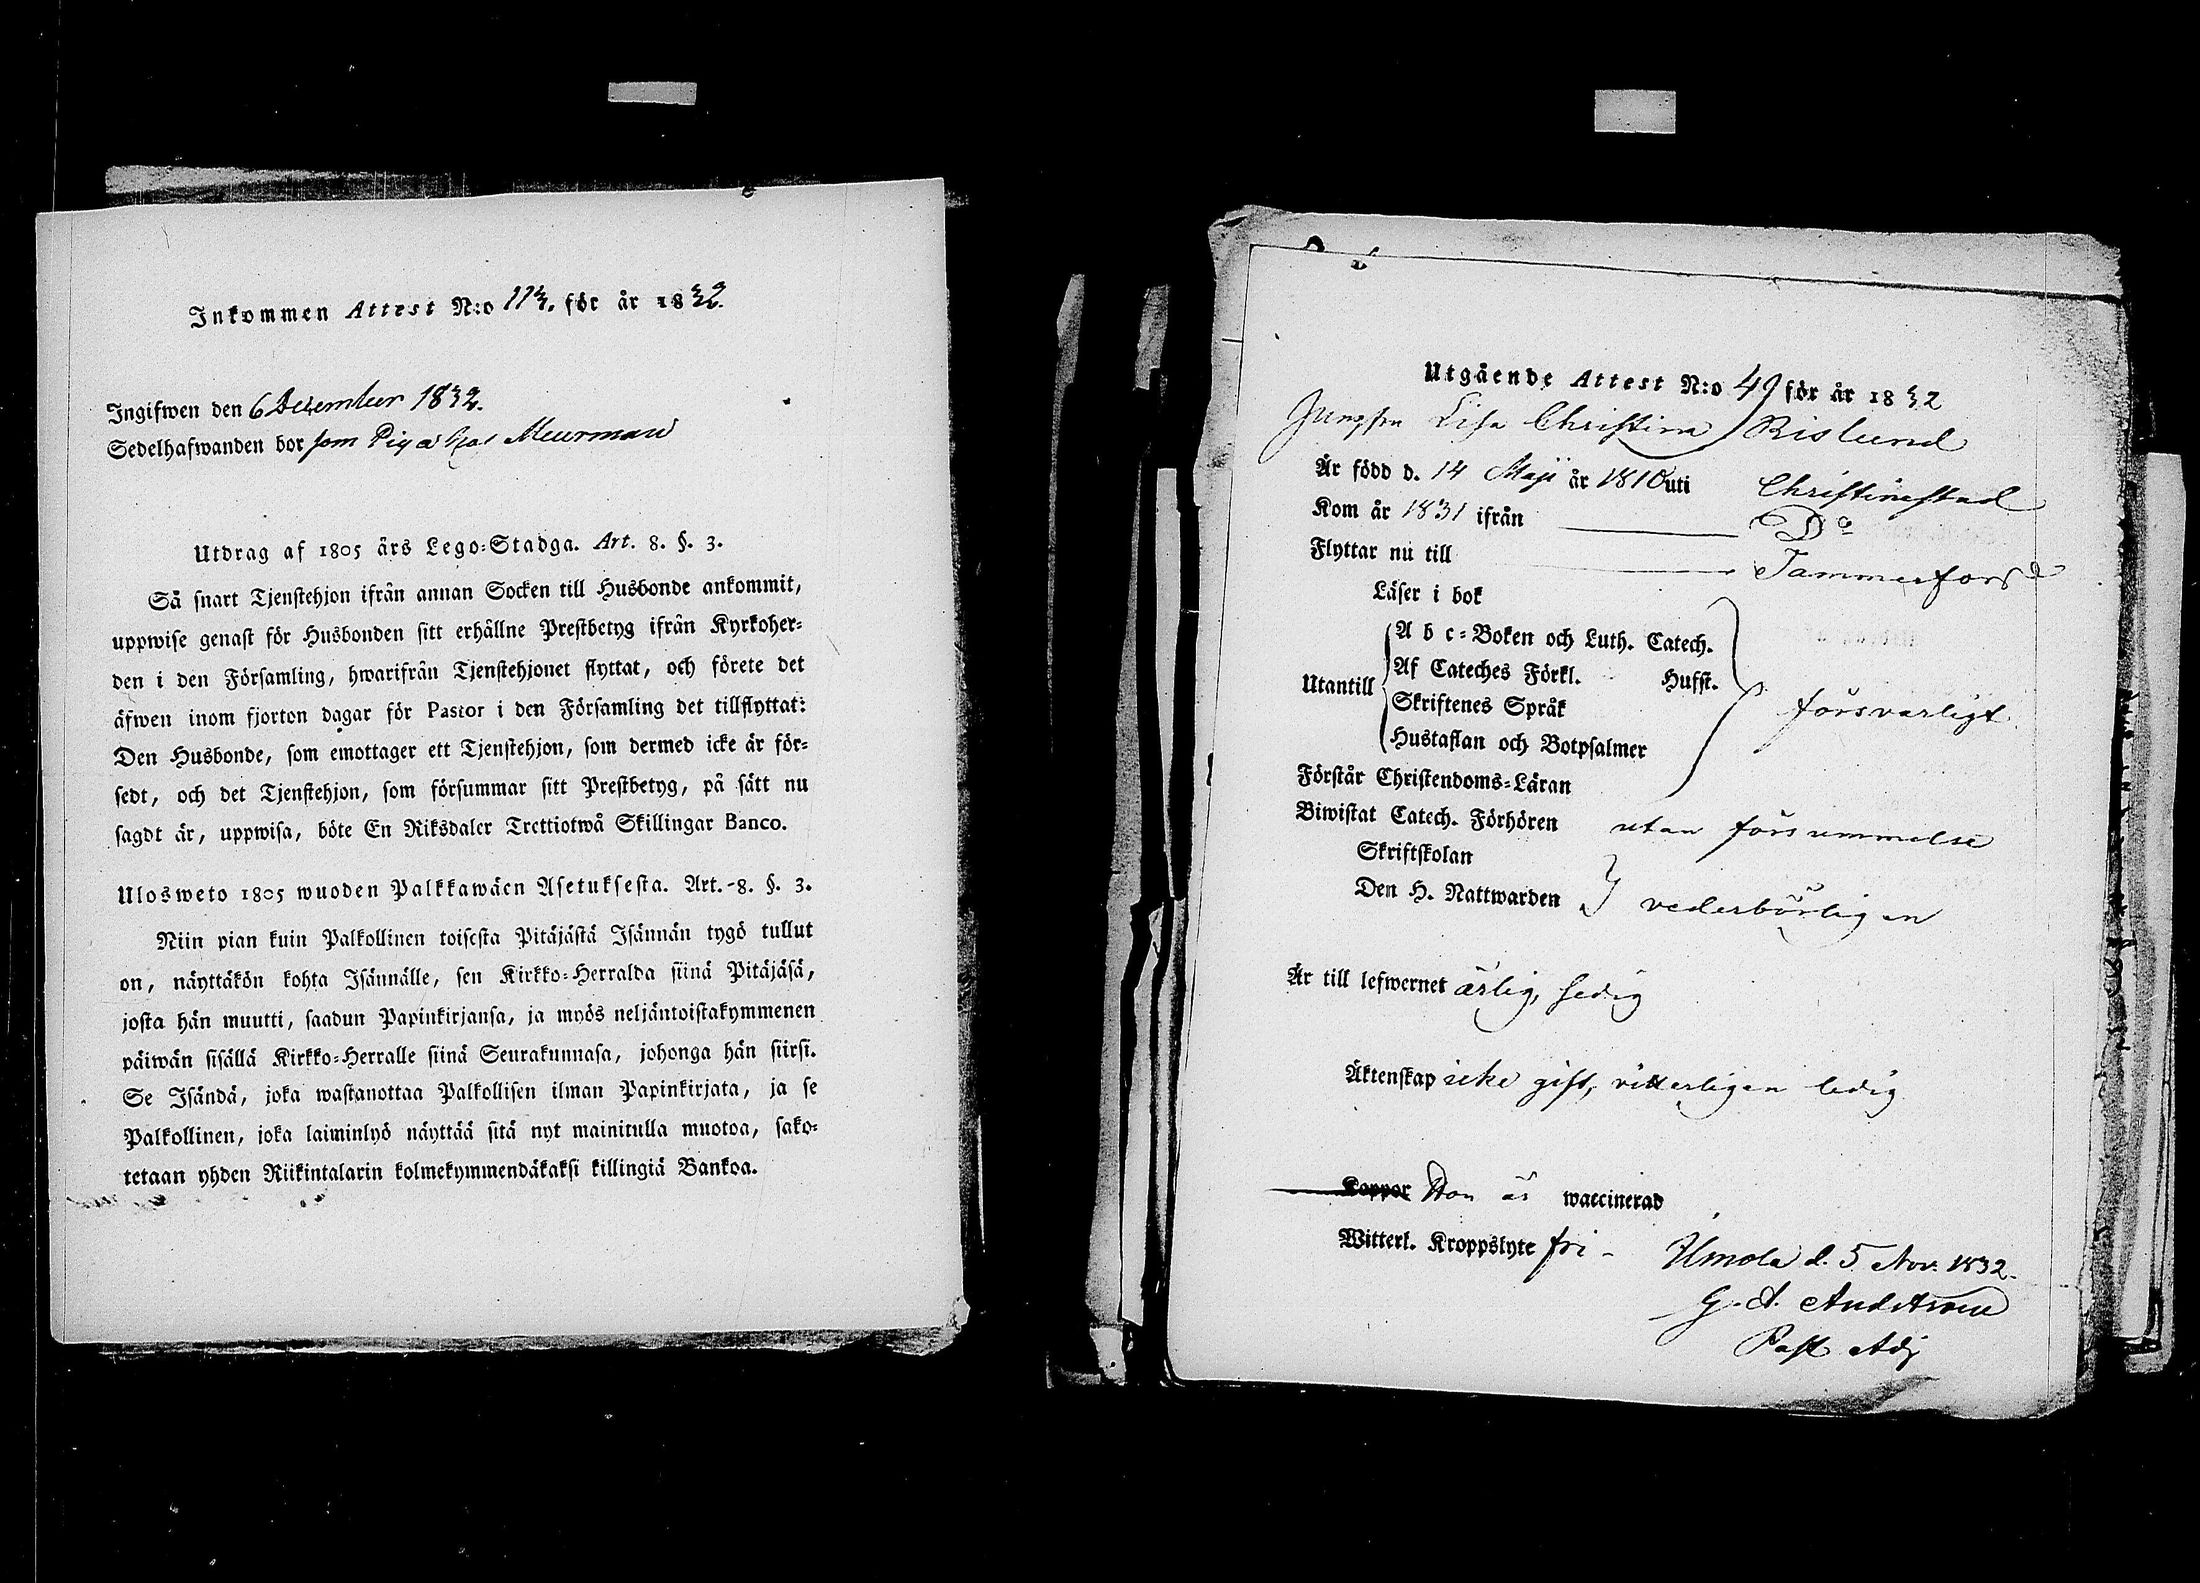 Inkommen Attest N:o 113. för år 1832.
Ingifwen den 6 December 1832.
Sedelhafwanden bor som Piga hos Meurman
Utdrag af 1805 års Lego-Stadga. Art. 8. §. 3.
Så snart Tjenstehjon ifrån annan Socken till Husbonde ankommit,
uppwise genast för Husbonden sitt erhållne Prestbetyg ifrån Kyrkoher-
den i den Församling, hwarifrån Tjenstehjonet flyttat, och förete det
äfwen inom fjorton dagar för Pastor i den Församling det tillflyttat:
Den Husbonde, som emottager ett Tjenstehjon, som dermed icke är för-
sedt, och det Tjenstehjon, som försummar sitt Prestbetyg, på sätt nu
sagdt är, uppwisa, böte En Riksdaler Trettiotwå Skillingar Banco.
Ulosweto 1805 wuoden Palkkawäen Asetuksesta. Art. 8. §. 3.
Niin pian kuin Palkollinen toisesta Pitäjästä Isännän tygö tullut
on, näyttäkön kohta Isännälle, sen Kirkko-Herralda siinä Pitäjäsä,
josta hän muutti, saadun Papinkirjansa, ja myös neljäntoistakymmenen
päiwän sisällä Kirkko-Herralle siinä Seurakunnasa, johonga hän siirsi.
Se Isändä, joka wastanottaa Palkollisen ilman Papinkirjata, ja se
Palkollinen, joka laiminlyö näyttää sitä nyt mainitulla muotoa, sako-
tetaan yhden Riikintalarin kolmekymmendäkaksi killingiä Bankoa.
Utgående Attest N:o 49 för år 1832
Jungfru Lisa Christina Rislund
Är född d. 14 Maji år 1810 uti Christinestad
Kom år 1831 ifrån Do
Flyttar nu till Tammerfors
Läser i bok
A b c-Boken och Luth. Catech.
Af Cateches Förkl. Husst.
Utantill
Skriftenes Språk
försvarligt
Hustaflan och Botpsalmer
Förstår Christendoms-Läran
Biwistat Catech. Förhören utan försummelse
Skriftskolan
Den H. Nattwarden } vederbörligen
Är till lefwernet ärlig, sedig
Äktenskap icke gift, vitterligen ledig
Koppor Hon är waccinerad
Witterl. Kroppslyte fri -
Ulmola d. 5 Nov. 1832.
G. A. Andström
Past. Adj